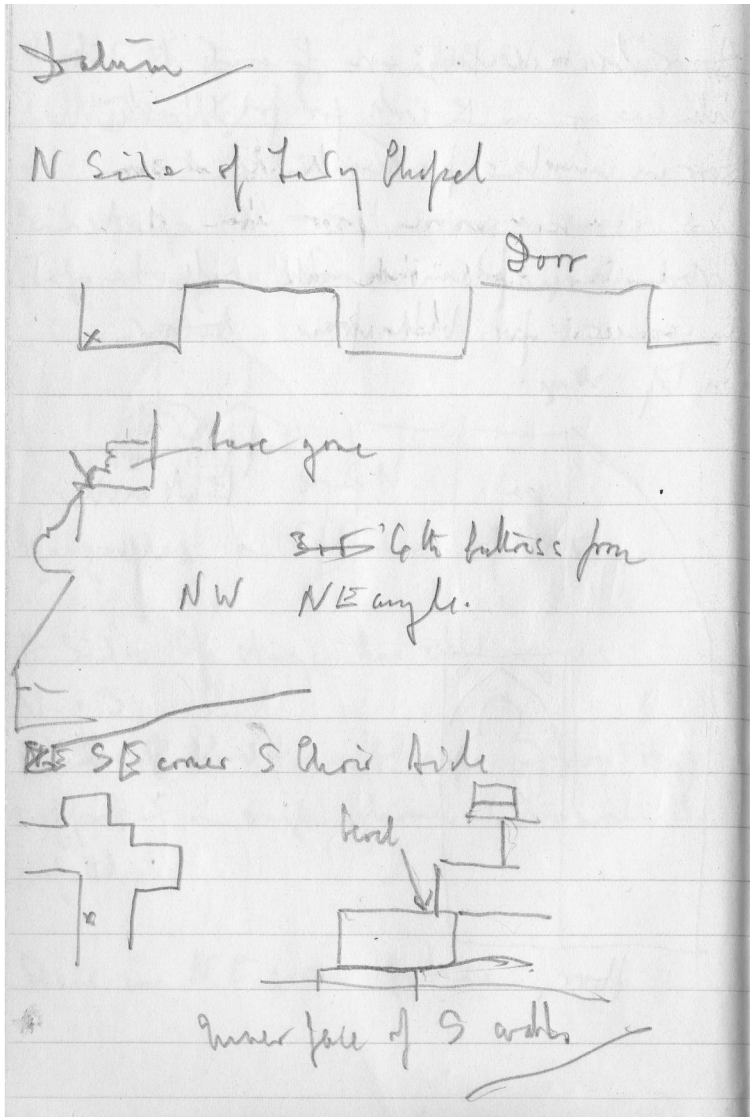 Datum
N Side of Lady Chapel
Door
x
have gone
6th buttress from
NW NE angle.
SE corner S Choir Aisle
level
x
Inner face of S